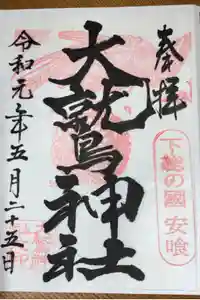 奉拝
下總の國 安喰
大鷲神社
令和元年五月二十五日